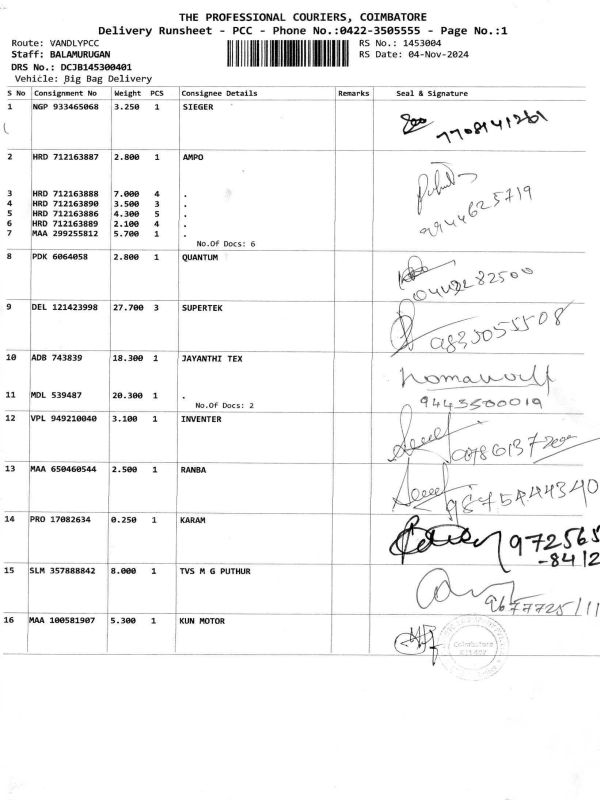 THE PROFESSIONAL COURIERS, COIMBATORE
Delivery Runsheet - PCC - Phone No.:0422-3505555 - Page No.:1
Route: VANDLYPCC RS No.: 1453004
Staff: BALAMURUGAN RS Date: 04-Nov-2024
DRS No.: DCJB145300401
Vehicle: Big Bag Delivery
S No Consignment No Weight PCS Consignee Details Remarks Seal & Signature
1 NGP 933465068 3.250 1 SIEGER
7708141261
2 HRD 712163887 2.800 1 AMPO
3 HRD 712163888 7.000 4 .
4 HRD 712163890 3.500 3 .
5 HRD 712163886 4.300 5 .
6 HRD 712163889 2.100 4 .
7 MAA 299255812 5.700 1 .
9944625719
No.Of Docs: 6
8 PDK 6064058 2.800 1 QUANTUM
9 DEL 121423998 27.700 3 SUPERTEK
10 ADB 743839 18.300 1 JAYANTHI TEX
11 MDL 539487 20.300 1 .
9443500019
No.Of Docs: 2
12 VPL 949210040 3.100 1 INVENTER
13 MAA 650460544 2.500 1 RANBA
9875444340
14 PRO 17082634 0.250 1 KARAM
972565
-8412
15 SLM 357888842 8.000 1 TVS M G PUTHUR
16 MAA 100581907 5.300 1 KUN MOTOR
Coimbatore